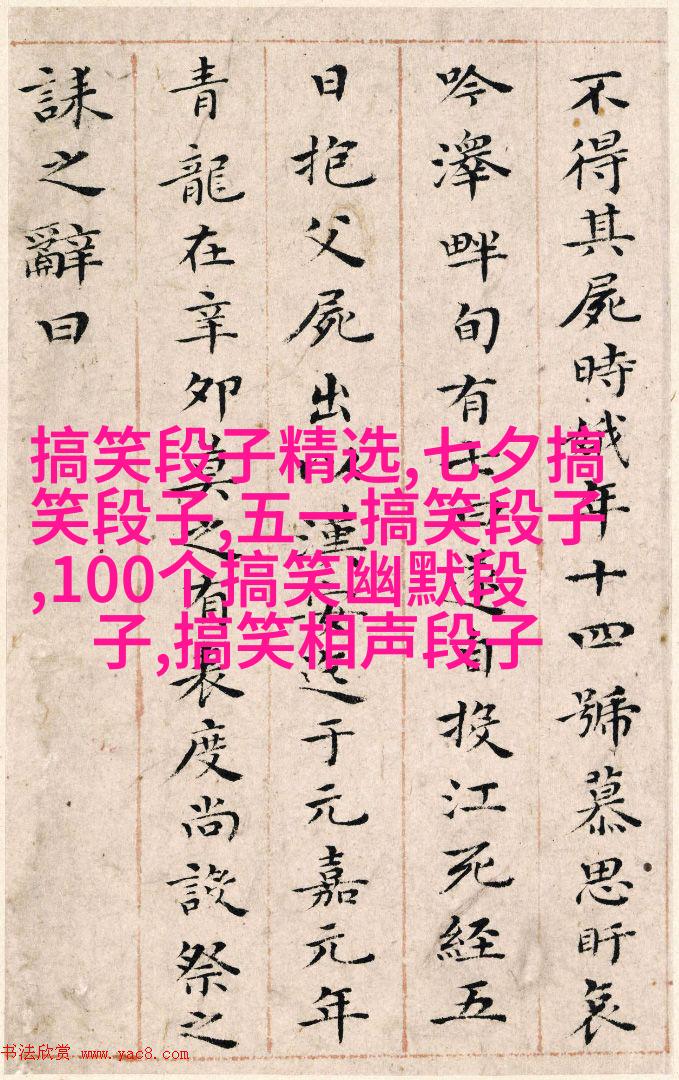 不得其屍時娥年十四號慕思盱哀
吟澤畔旬有七日遂自投江死経五
日抱父屍出以漢安迄于元嘉元年
青龍在辛卯莫之有表度尚設祭之
誄之辭曰
搞笑段子精选,七夕搞
笑段子,五一搞笑段子
,100个搞笑幽默段
子,搞笑相声段子
书法欣赏 www.yac8.com